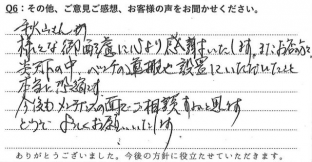 Q6:その他、ご意見ご感想、お客様の声をお聞かせください。
秋山さんの
様々な御配慮に心より感謝いたします。またお客の
炎天下の中、ベンチの運搬や設置にいただいたこと
本当に恐縮です
今後もメンテナンスの面でご相談すると思います
どうぞよろしくお願いいたします
ありがとうございました。今後の方針に役立たせていただきます。